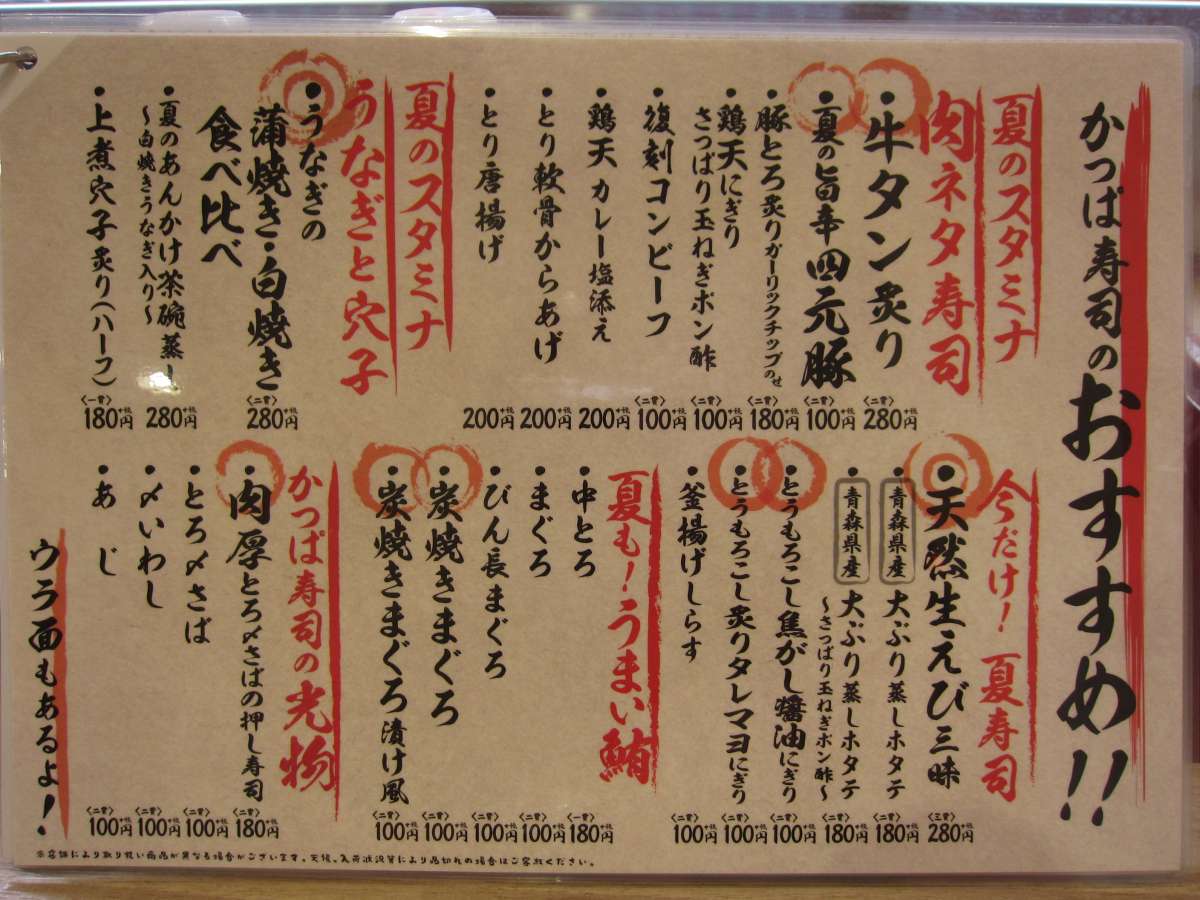 かっぱ寿司のおすすめ!!
夏のスタミナ
肉ネタ寿司
・牛タン炙り
〈二貫〉280円+税
・夏の旨辛四元豚
〈二貫〉100円+税
・豚とろ炙りガーリックチップのせ
〈二貫〉180円+税
・鶏天にぎり
さっぱり玉ねぎポン酢
〈二貫〉100円+税
・復刻コンビーフ
〈二貫〉100円+税
・鶏天カレー塩添え
200円+税
・とり軟骨からあげ
200円+税
・とり唐揚げ
200円+税
夏のスタミナ
うなぎと穴子
・うなぎの
蒲焼き・白焼き
食べ比べ
〈二貫〉280円+税
・夏のあんかけ茶碗蒸し
〜白焼きうなぎ入り〜
280円+税
・上煮穴子炙り(ハーフ)
〈一貫〉180円+税
今だけ!夏寿司
・天然生えび三昧
〈三貫〉280円+税
・青森県産大ぶり蒸しホタテ
〈二貫〉180円+税
・青森県産大ぶり蒸しホタテ
〜さっぱり玉ねぎポン酢〜
〈二貫〉180円+税
・とうもろこし焦がし醤油にぎり
〈二貫〉100円+税
・とうもろこし炙りタレマヨにぎり
〈二貫〉100円+税
・釜揚げしらす
〈二貫〉100円+税
夏も!うまい鮪
・中とろ
〈二貫〉180円+税
・まぐろ
〈二貫〉100円+税
・びん長まぐろ
〈二貫〉100円+税
・炭焼きまぐろ
〈二貫〉100円+税
・炭焼きまぐろ漬け風
〈二貫〉100円+税
かっぱ寿司の光物
・肉厚とろ〆さばの押し寿司
〈二貫〉180円+税
・とろ〆さば
〈二貫〉100円+税
・〆いわし
〈二貫〉100円+税
・あじ
〈二貫〉100円+税
ウラ面もあるよ!
※店舗により取り扱い商品が異なる場合がございます。天候、入荷状況等により品切れの場合はご容赦ください。